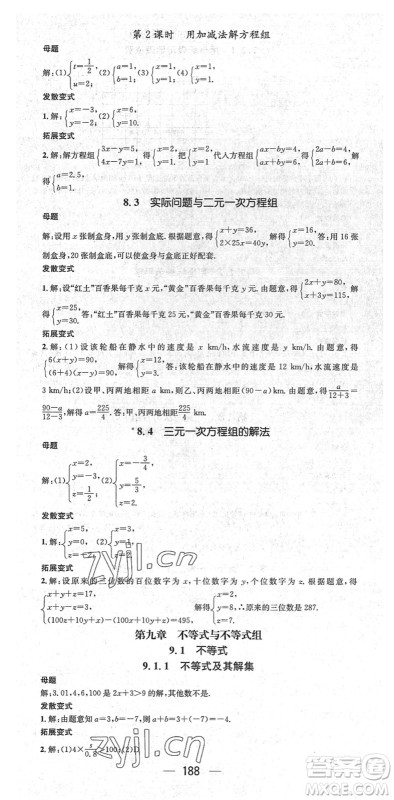 第2课时 用加减法解方程组
母题
解:(1){t=1/2, u=2; (2){a=1, b=1. (3){x=1, y=2.
发散变式
1.解:(1){x=-3, y=-2; (2){x=6, y=10.
拓展变式
2.解:解方程组{3x-5y=-2, 4x-7y=-1, 得{x=1, y=1. 把{x=1, y=1 代入方程组{ax-by=4, ax+by=6, 得{a-b=4, a+b=6, 解
得
8.3 实际问题与二元一次方程组
母题
解:设用x张制盒身,y张制盒底.根据题意,得{x+y=36, 2×25x=40y, 解得{x=16, y=20. 答:用16张
制盒身,20张制盒底可使盒身与盒底正好配套.
发散变式
1.解:设“红土”百香果每千克x元,“黄金”百香果每千克y元.由题意,得{2x+y=80, x+3y=115, 解得
{x=25, y=30. 答:“红土”百香果每千克25元,“黄金”百香果每千克30元.
拓展变式
2.解:(1)设该轮船在静水中的速度是x km/h,水流速度是y km/h.由题意,得
{6(x+y)=90, 解得{x=12, y=3. 答:该轮船在静水中的速度是12 km/h,水流速度是
3 km/h;(2)设甲、丙两地相距a km,则乙、丙两地相距(90-a)km.由题意,得a/(12+3)=
(90-a)/(12-3),解得a=225/4. 答:甲、丙两地相距225/4 km.
*8.4 三元一次方程组的解法
母题
解:(1){x=2, y=3, z=1/2; (2){x=-3/4, y=5/3,
发散变式
1.解:(1){x=5, y=0, (2)
拓展变式
2.解:设原来的三位数的百位数字为x,十位数字为y,个位数字为z.由题意,得
{x+y+z=17, 解得{x=2, y=8, z=7. 答:原来的三位数是287.
(100z+10y+x)-(100x+10y+z)=495,
第九章 不等式与不等式组
9.1 不等式
9.1.1 不等式及其解集
母题
解:3.01,4,6,100是2x+3>9的解.
发散变式
1.解:由题意知a=3,b=-1,∴a+b=3+(-1)=2.
拓展变式
2.解:(1)4×x/0.8>100;(2)D
188
zyjl.cn
答案圈